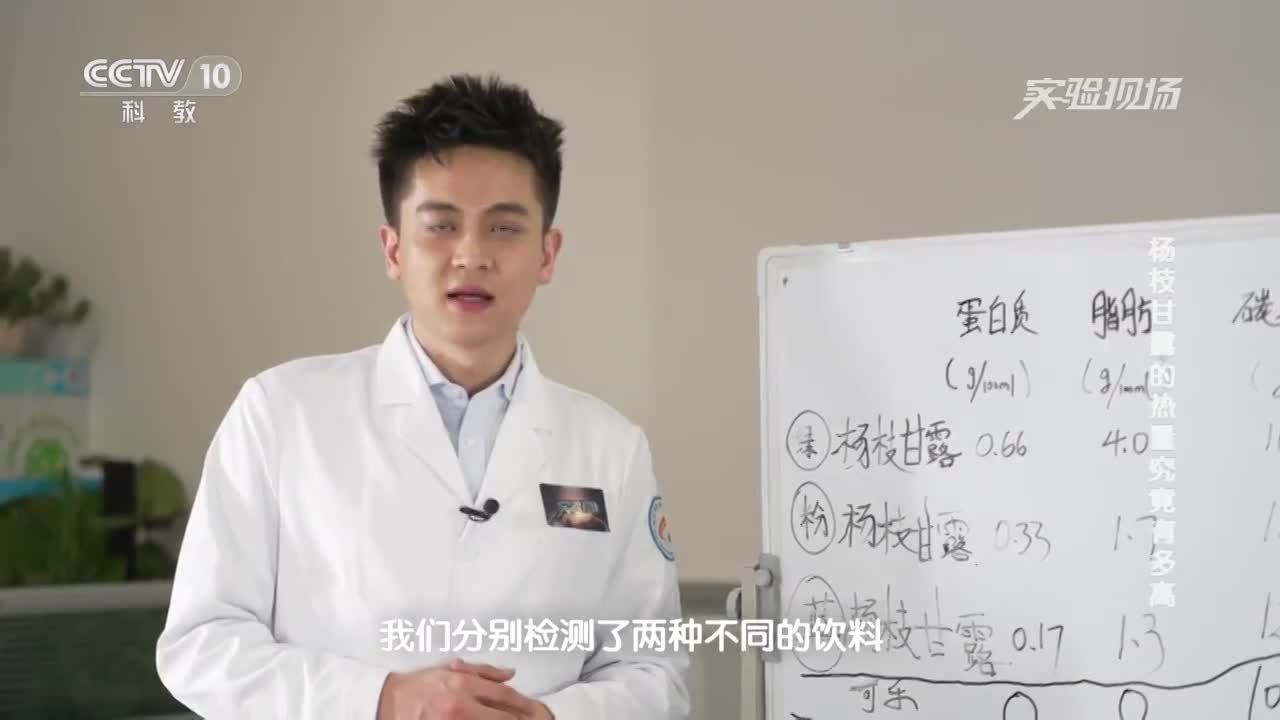 CCTV 10
科教
实验现场
杨枝甘露的热量究竟有多高
蛋白质 脂肪
(g/100ml) (g/100ml)
绿 杨枝甘露 0.66 4.0
粉 杨枝甘露 0.33 1.7
蓝 杨枝甘露 0.17 1.3
可乐 0 0 10
我们分别检测了两种不同的饮料